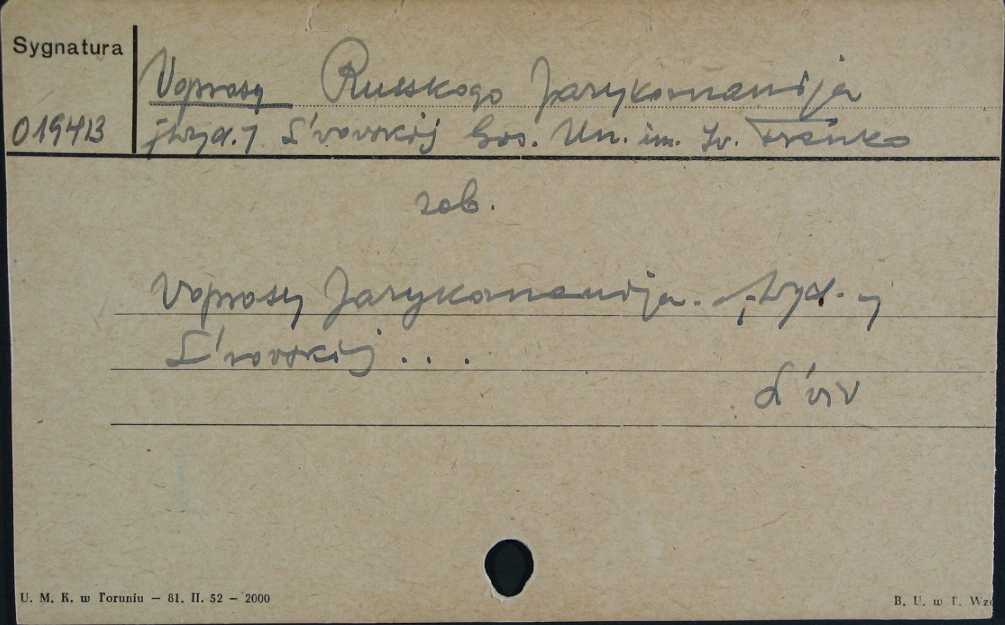 Sygnatura
Voprosy Russkogo Jazykoznanija
019413 [wyd.] L'vovskij Gos. Un. im. Iv. Franko
zob.
Voprosy Jazykoznanija. [wyd.]
L'vovskij ...
L'viv
U. M. K. w Toruniu – 81. II. 52 – 2000
B. U. w T. Wzó